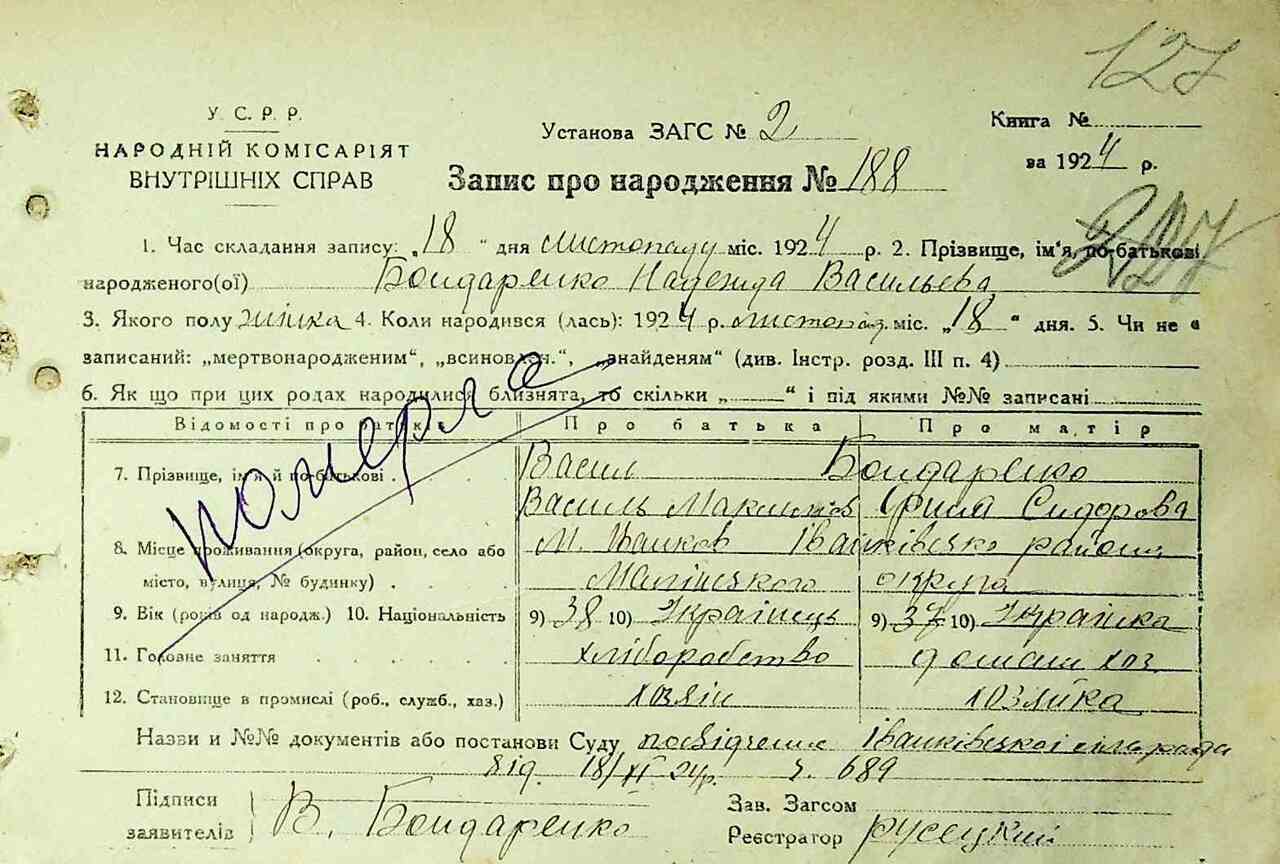 127
У. С. Р. Р.
НАРОДНІЙ КОМІСАРІЯТ
ВНУТРІШНІХ СПРАВ
Установа ЗАГС № 2
Книга №
за 1924 р.
Запис про народження № 188
1. Час складання запису: „18“ дня листопаду міс. 1924 р. 2. Прізвище, ім'я, по-батькові
народженого(ої) Бондаренко Надежда Васильева
3. Якого полу жінка 4. Коли народився (лась): 1924 р. листопад міс. „18“ дня. 5. Чи не є
записаний: „мертвонародженим“, „всиновлен.“, „знайденям“ (див. Інстр. розд. III п. 4)
6. Як що при цих родах народилися близнята, то скільки „ “ і під якими №№ записані
померла
Відомості про батьків Про батька Про матір
7. Прізвище, ім'я й по-батькові . Васил Бондаренко
Василь Максимів Орина Сидорова
8. Місце проживання (округа, район, село або М. Іванков Іванківсько району
місто, вулиця, № будинку) . Малінського округа
9. Вік (років од народж.) 10. Національність 9) 38 10) Українець 9) 37 10) Українка
11. Головне заняття хліборобство домаш хоз.
12. Становище в промислі (роб., служб., хаз.) хозяін хозяйка
Назви и №№ документів або постанови Суду посвідчення Іванківської
від. 18/XI 24р. ч. 689
Підписи
заявителів В. Бондаренко
Зав. Загсом
Реєстратор Русецкий